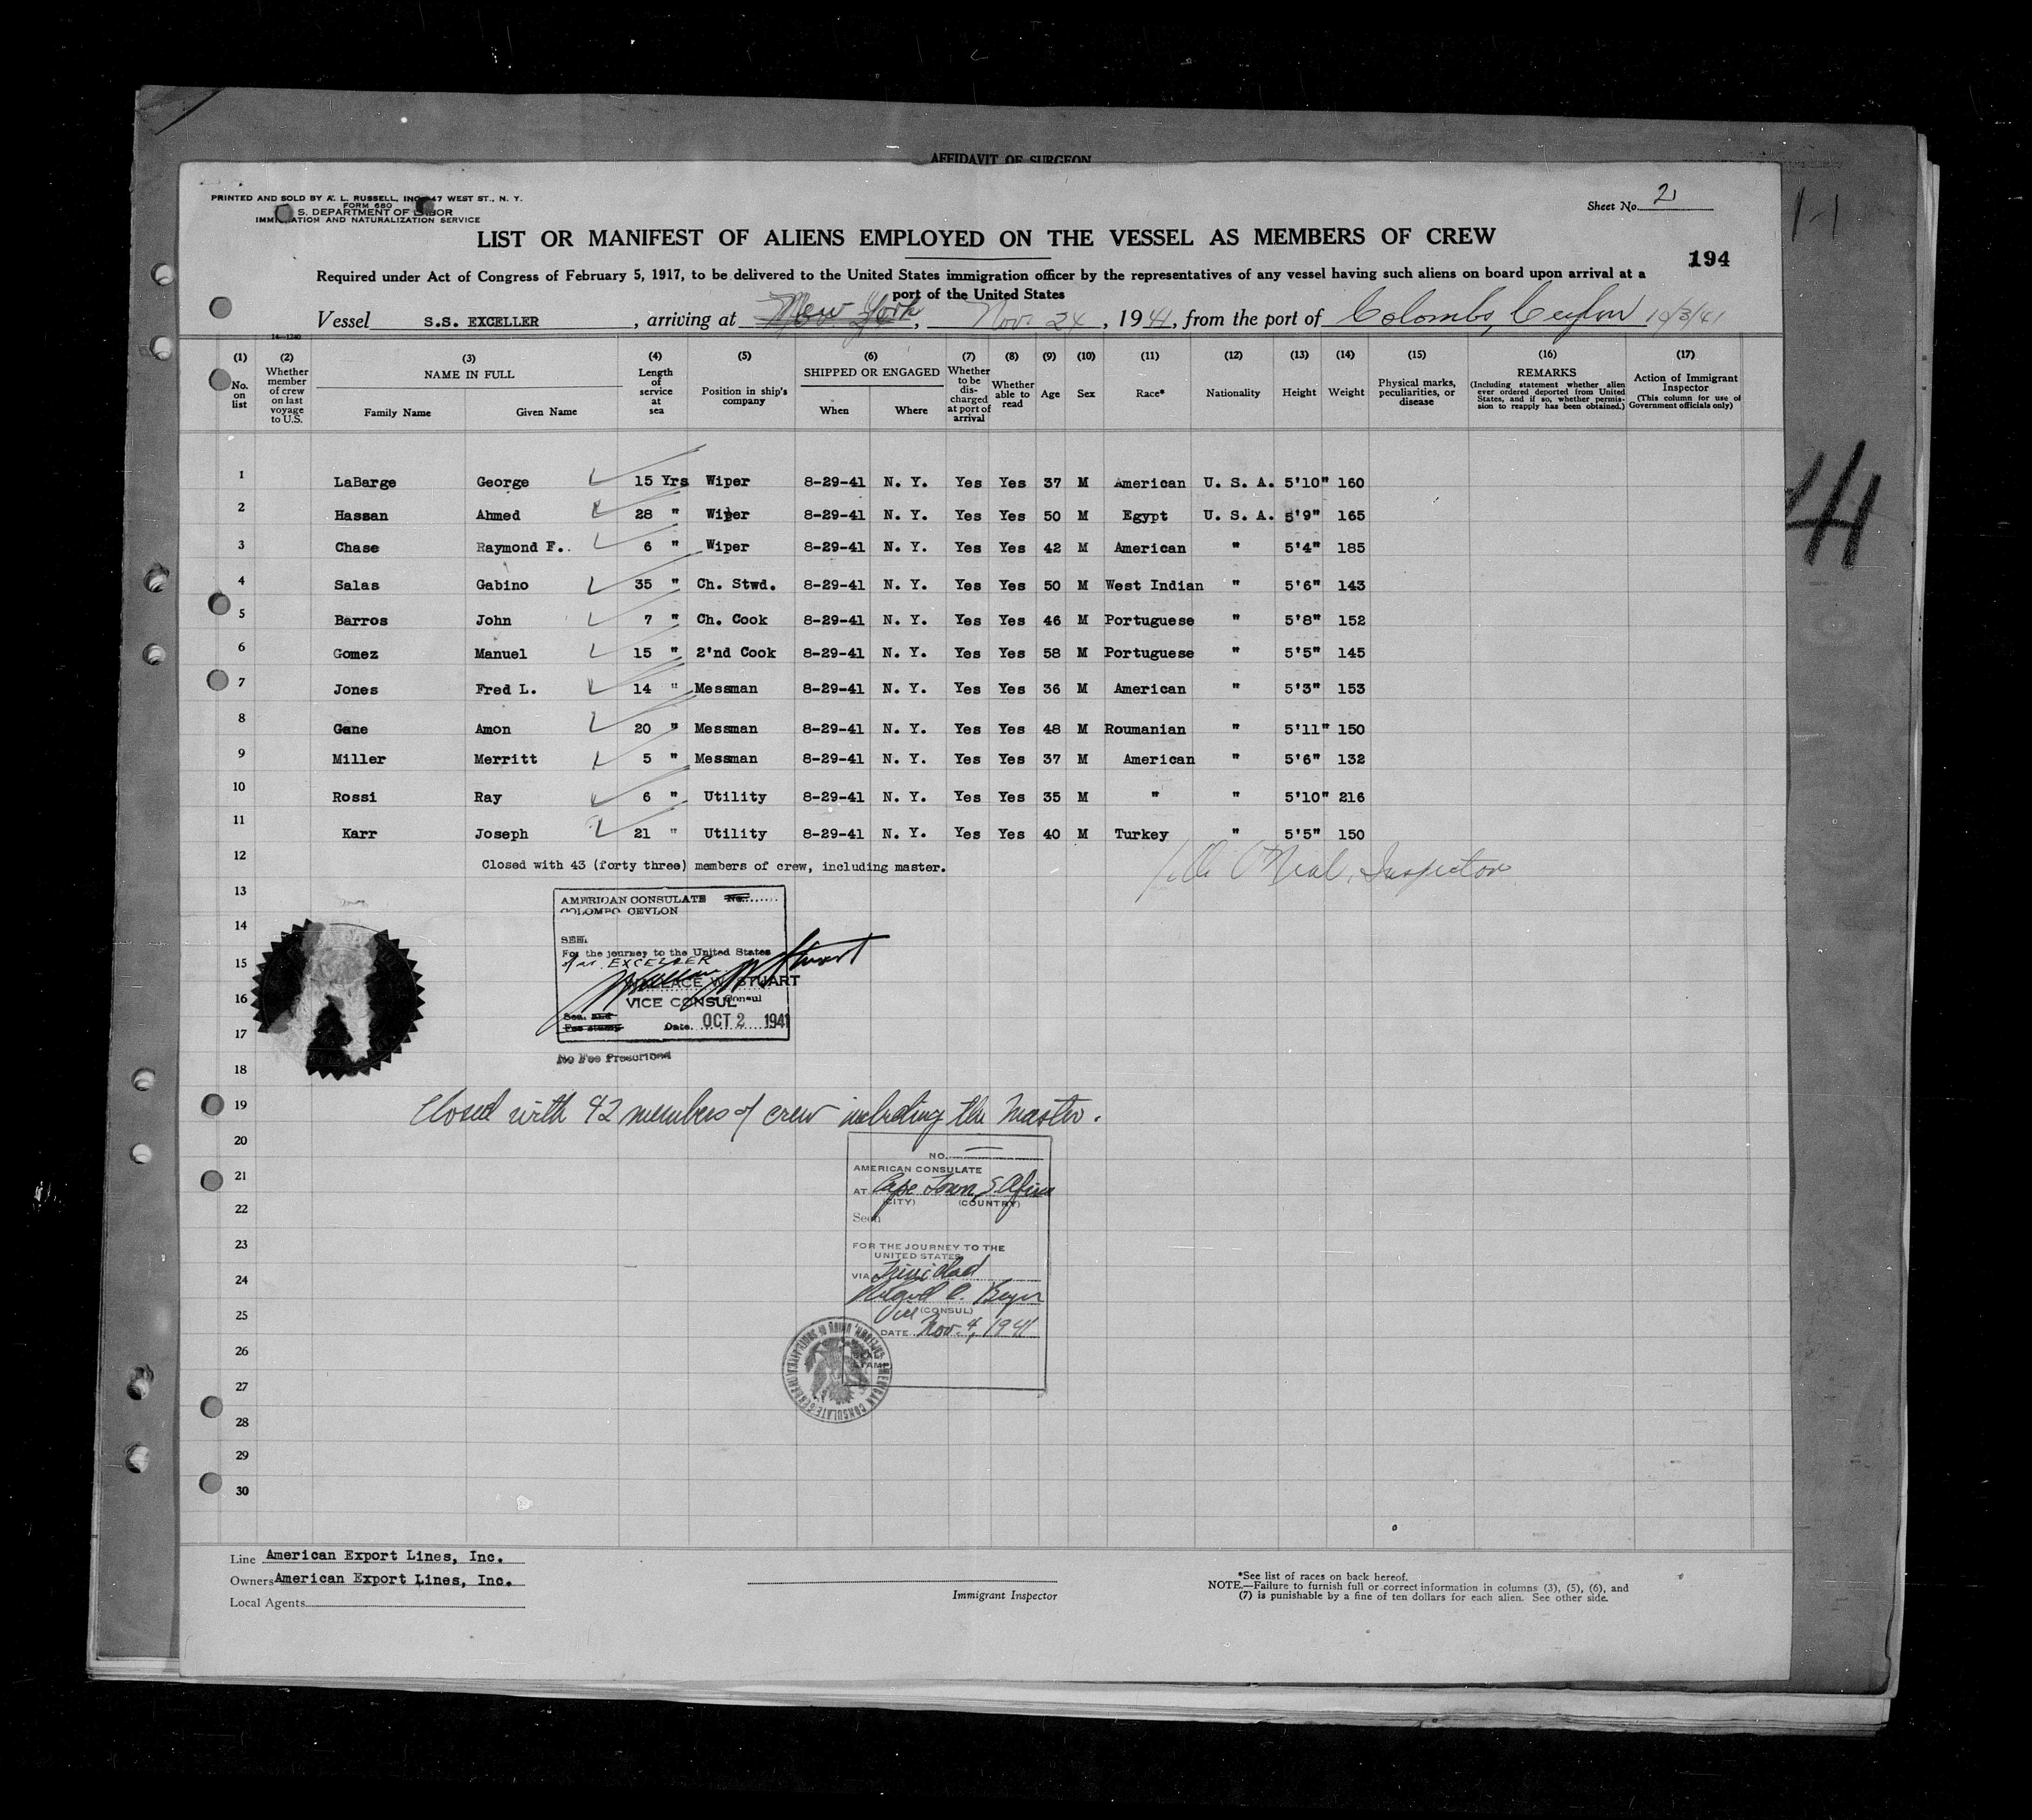 AFFIDAVIT OF SURGEON
PRINTED AND SOLD BY A. L. RUSSELL, INC. 47 WEST ST., N. Y.
FORM 680
S. DEPARTMENT OF LABOR
IMMIGRATION AND NATURALIZATION SERVICE
Sheet No. 2
LIST OR MANIFEST OF ALIENS EMPLOYED ON THE VESSEL AS MEMBERS OF CREW
194
Required under Act of Congress of February 5, 1917, to be delivered to the United States immigration officer by the representatives of any vessel having such aliens on board upon arrival at a
port of the United States
Vessel S.S. EXCELLER, arriving at New York, Nov. 24, 1941, from the port of Colombo, Ceylon 10/3/41
14—1240
(1) (2) (3) (4) (5) (6) (7) (8) (9) (10) (11) (12) (13) (14) (15) (16) (17)
No. on list
Whether member of crew on last voyage to U.S.
NAME IN FULL
Family Name Given Name
Length of service at sea
Position in ship's company
SHIPPED OR ENGAGED
When Where
Whether to be discharged at port of arrival
Whether able to read
Age
Sex
Race*
Nationality
Height
Weight
Physical marks, peculiarities, or disease
REMARKS
(Including statement whether alien ever ordered deported from United States, and if so, whether permission to reapply has been obtained.)
Action of Immigrant Inspector
(This column for use of Government officials only)
1 LaBarge George 15 Yrs Wiper 8-29-41 N. Y. Yes Yes 37 M American U. S. A. 5'10" 160
2 Hassan Ahmed 28 " Wiper 8-29-41 N. Y. Yes Yes 50 M Egypt U. S. A. 5'9" 165
3 Chase Raymond F. 6 " Wiper 8-29-41 N. Y. Yes Yes 42 M American " 5'4" 185
4 Salas Gabino 35 " Ch. Stwd. 8-29-41 N. Y. Yes Yes 50 M West Indian " 5'6" 143
5 Barros John 7 " Ch. Cook 8-29-41 N. Y. Yes Yes 46 M Portuguese " 5'8" 152
6 Gomez Manuel 15 " 2'nd Cook 8-29-41 N. Y. Yes Yes 58 M Portuguese " 5'5" 145
7 Jones Fred L. 14 " Messman 8-29-41 N. Y. Yes Yes 36 M American " 5'3" 153
8 Gane Amon 20 " Messman 8-29-41 N. Y. Yes Yes 48 M Roumanian " 5'11" 150
9 Miller Merritt 5 " Messman 8-29-41 N. Y. Yes Yes 37 M American " 5'6" 132
10 Rossi Ray 6 " Utility 8-29-41 N. Y. Yes Yes 35 M " " 5'10" 216
11 Karr Joseph 21 " Utility 8-29-41 N. Y. Yes Yes 40 M Turkey " 5'5" 150
12 Closed with 43 (forty three) members of crew, including master.
O'Neal, Inspector
13
AMERICAN CONSULATE No.
COLOMBO CEYLON
14
SEEN
For the journey to the United States
15
EXCELLER
WALLACE W. STUART
16
VICE CONSUL Consul
17
Fee stamp Date OCT 2 1941
No Fee Prescribed
18
19 Closed with 42 members of crew including the Master.
20
NO.
AMERICAN CONSULATE
21
AT Cape Town, S. Africa
(CITY) (COUNTRY)
22
Seen
23
FOR THE JOURNEY TO THE
UNITED STATES
24
VIA Trinidad
25
Vice (CONSUL)
DATE Nov. 4, 1941
26
27
28
29
30
Line American Export Lines, Inc.
Owners American Export Lines, Inc.
Local Agents
Immigrant Inspector
*See list of races on back hereof.
NOTE.—Failure to furnish full or correct information in columns (3), (5), (6), and
(7) is punishable by a fine of ten dollars for each alien. See other side.